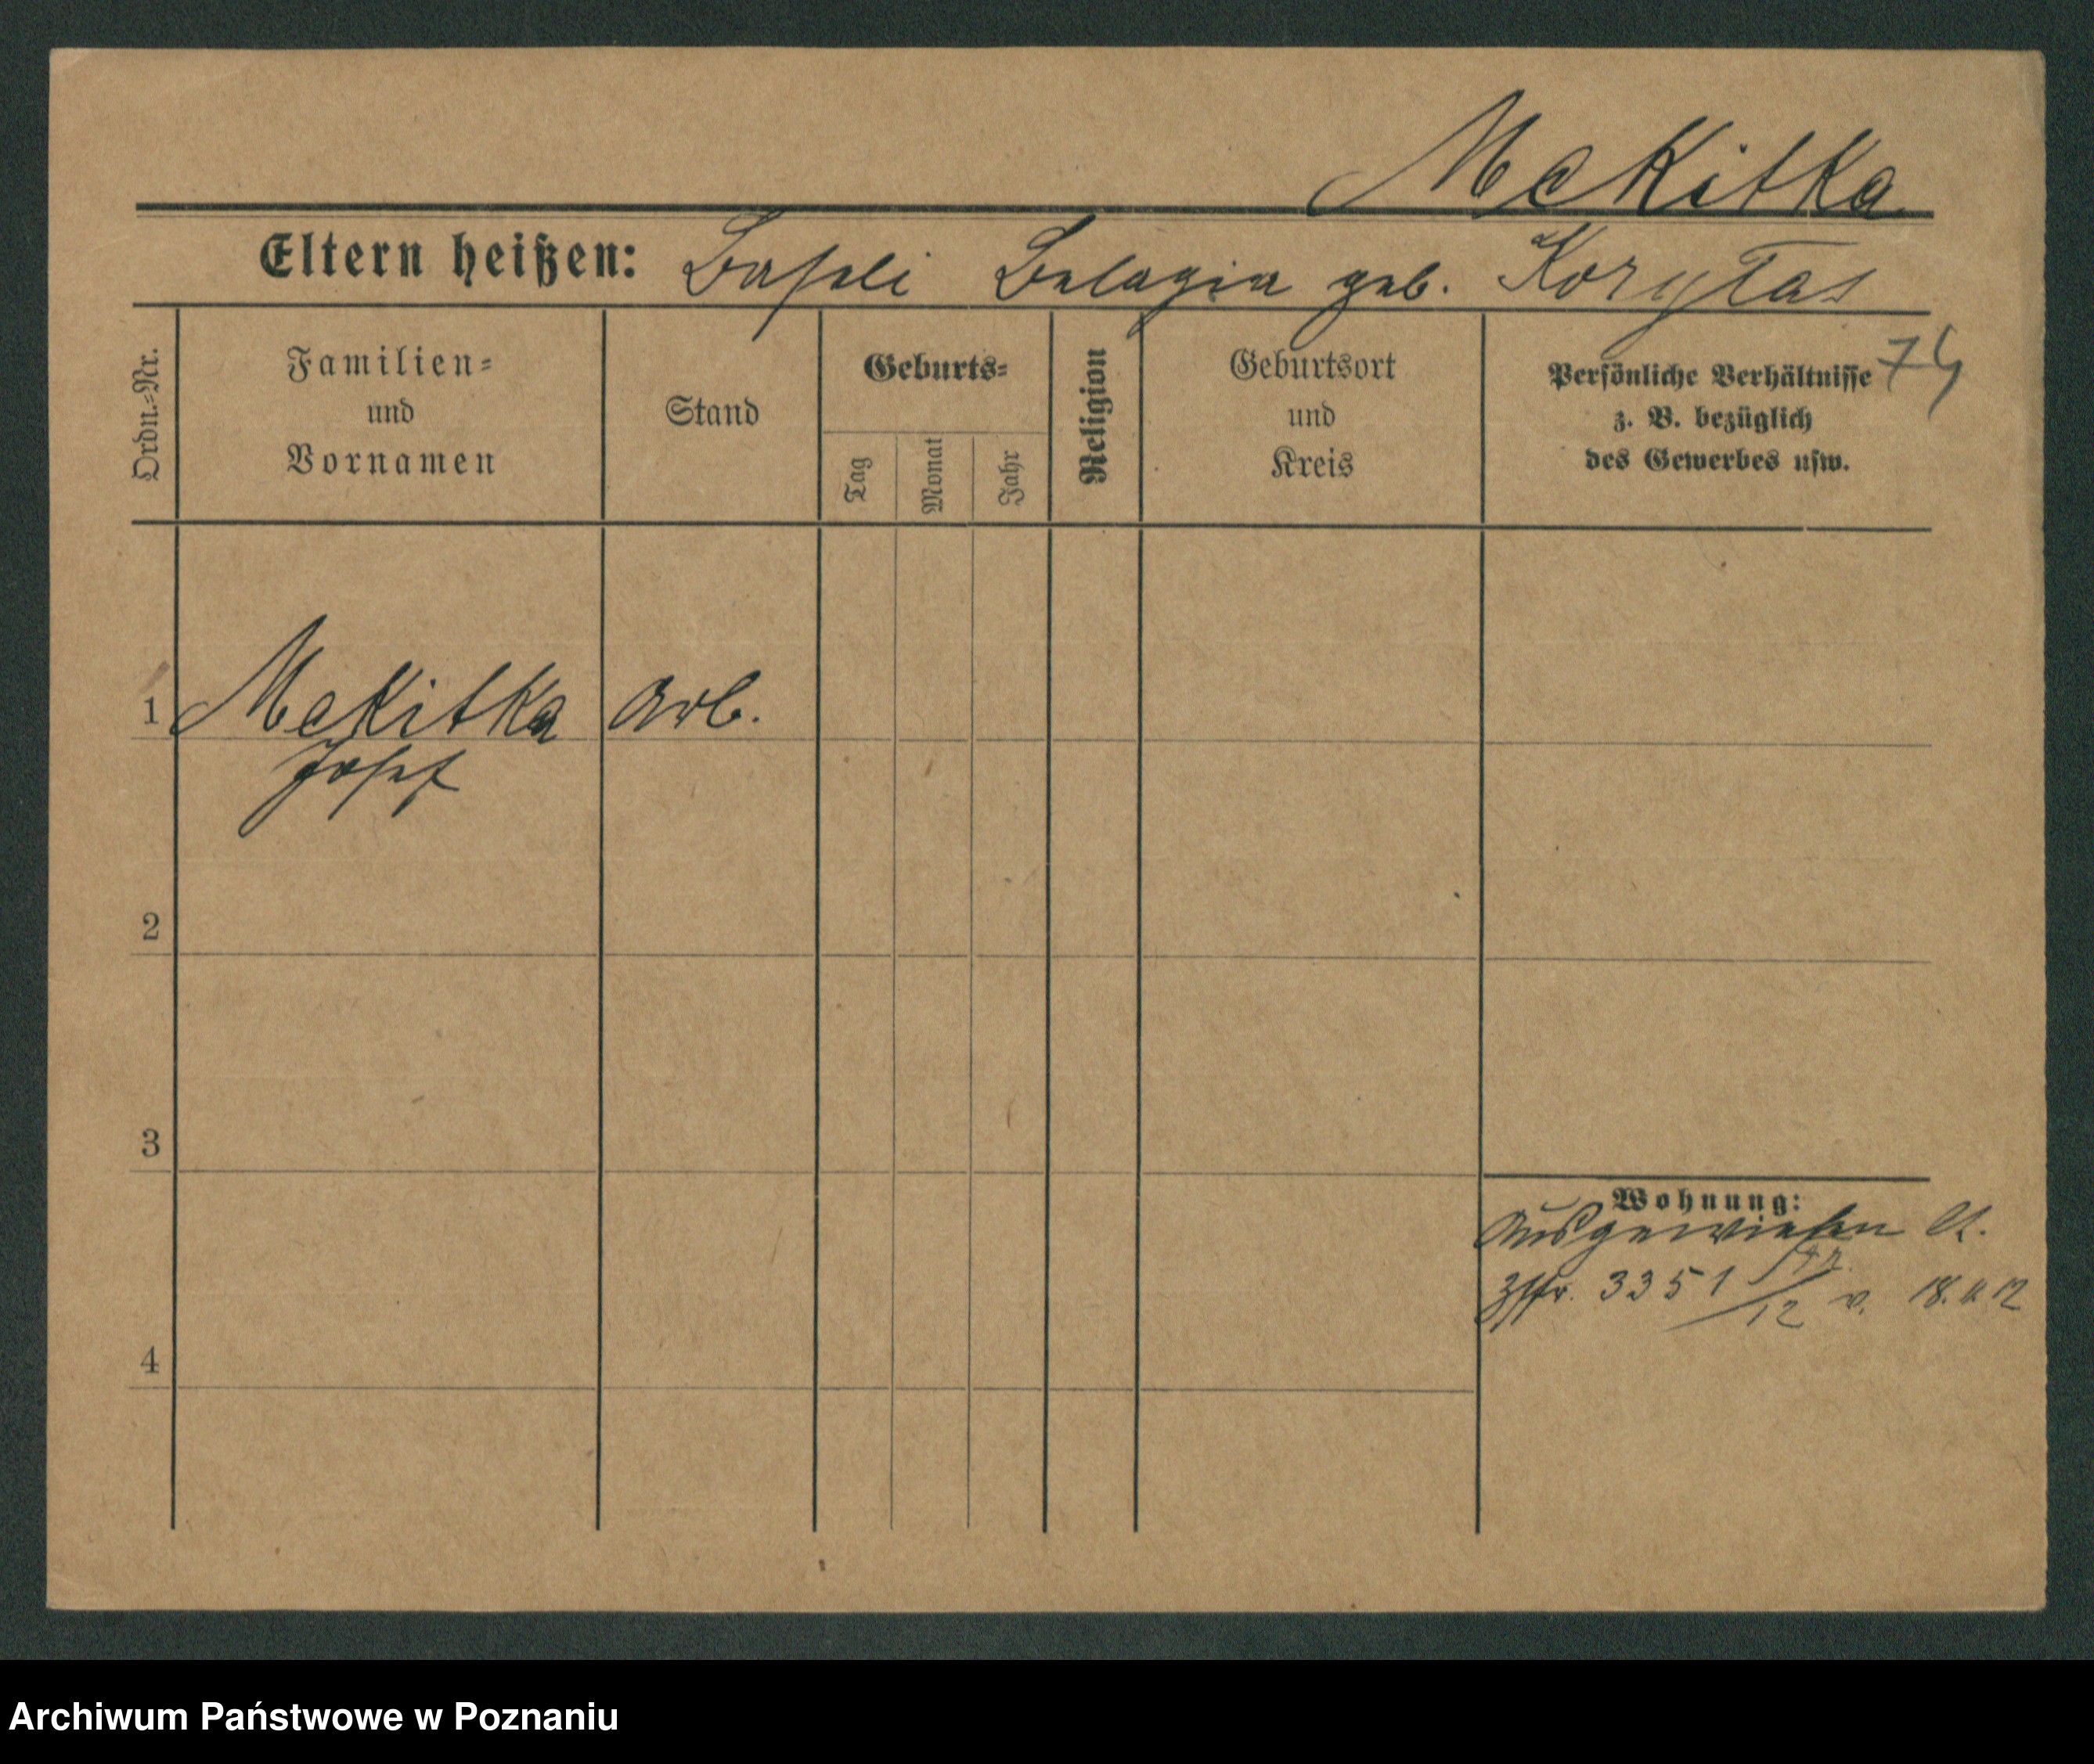 Mekitka
Eltern heißen: Baseli Belagia geb. Korytas
Ordn.-Nr.
Familien-
und
Vornamen
Stand
Geburts-
Tag
Monat
Jahr
Religion
Geburtsort
und
Kreis
Persönliche Verhältnisse
z. B. bezüglich
des Gewerbes usw.
74
1 Mekitka Arb.
Josef
2
3
4
Wohnung:
Ausgewiesen lt.
3351 /12 v. 18.11.12
Archiwum Państwowe w Poznaniu